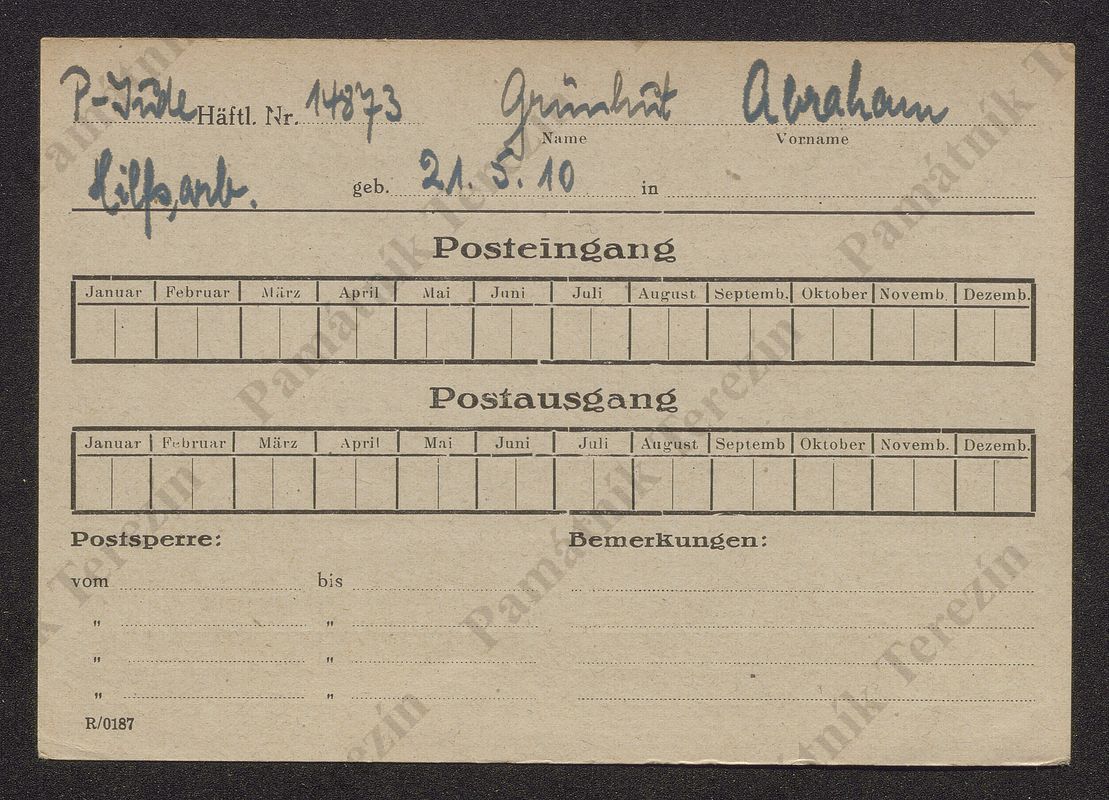 P-Jude Häftl. Nr. 14873 Grünhut Abraham
Name Vorname
Hilfsarb. geb. 21. 5. 10 in
Posteingang
Januar Februar März April Mai Juni Juli August Septemb. Oktober Novemb. Dezemb.
Postausgang
Januar Februar März April Mai Juni Juli August Septemb Oktober Novemb. Dezemb.
Postsperre: Bemerkungen:
vom bis
" "
" "
" "
R/0187
Památník Terezín